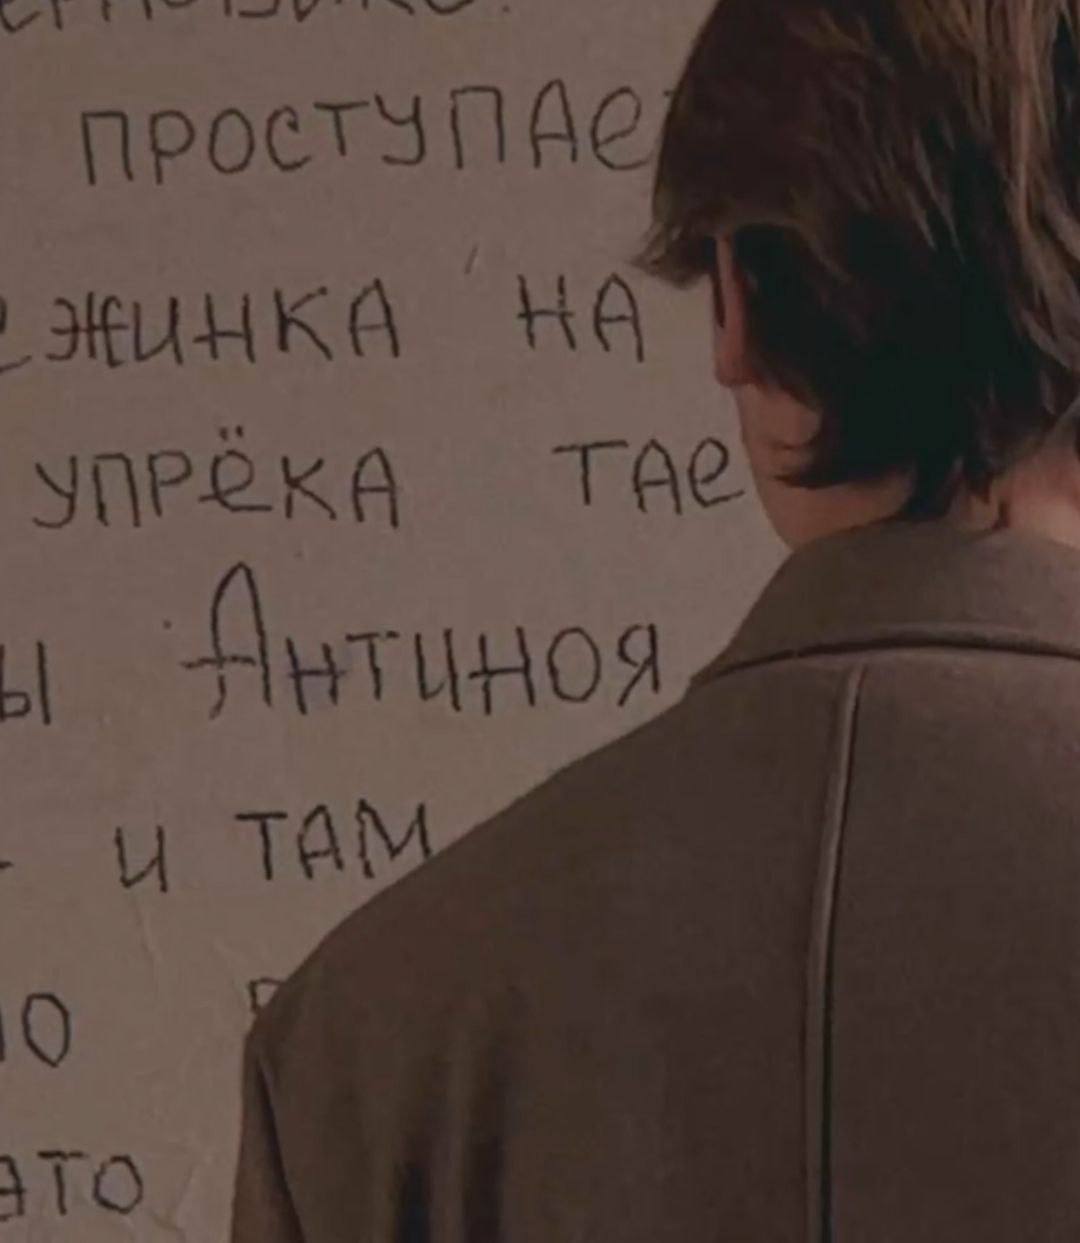 проступае
ежинка на
упрёка тае
ы Антиноя
и там
ю
это